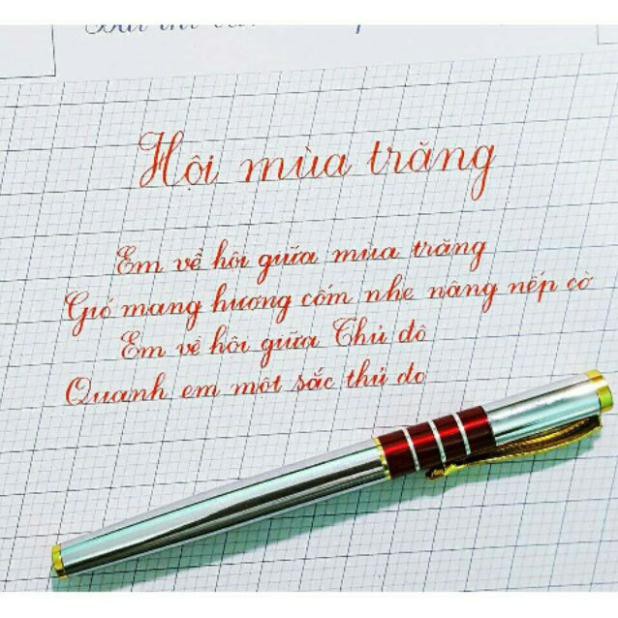 Hội mùa trăng
Em về hội giữa mùa trăng
Gió mang hương cốm nhẹ nâng nếp cờ
Em về hội giữa Thủ đô
Quanh em một sắc thủ đo